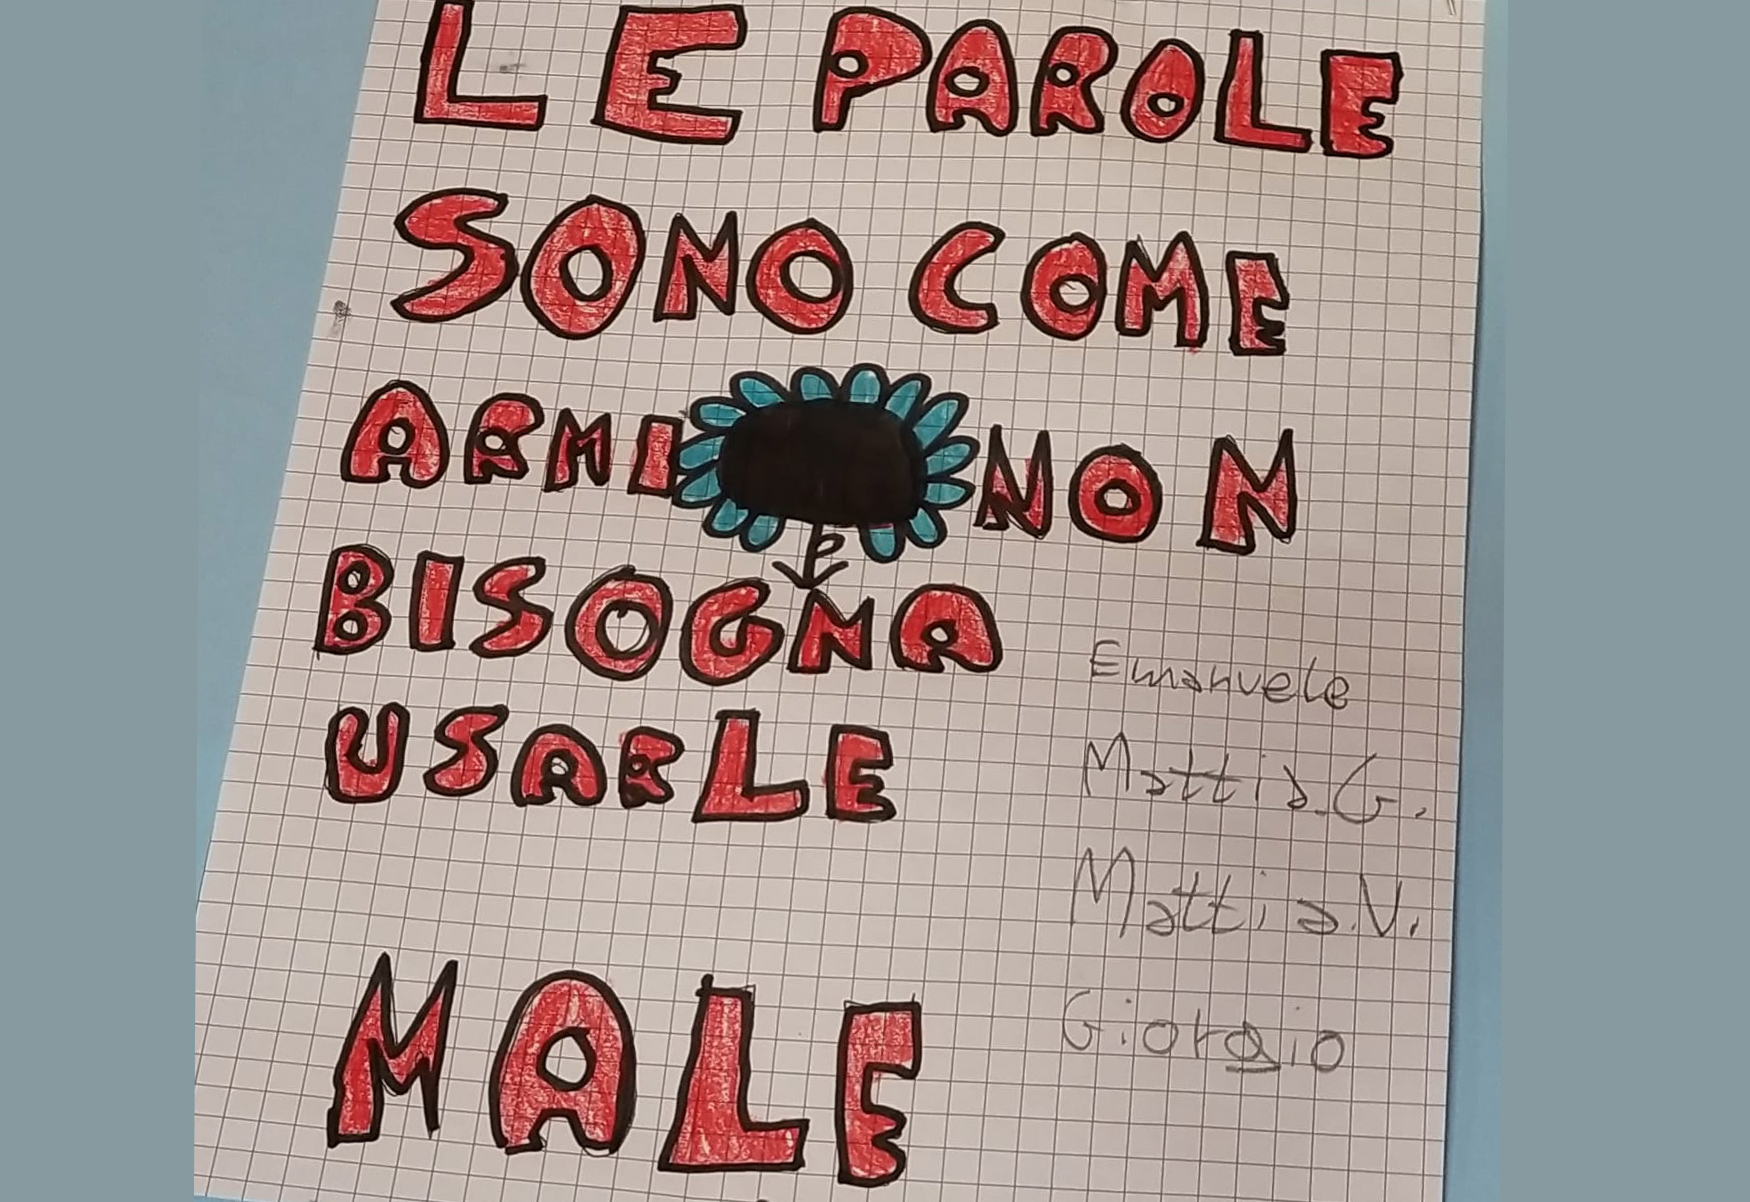 LE PAROLE
SONO COME
ARMI NON
BISOGNA
USARLE
MALE
Emanuele
Mattia.G.
Mattia.V.
Giorgio